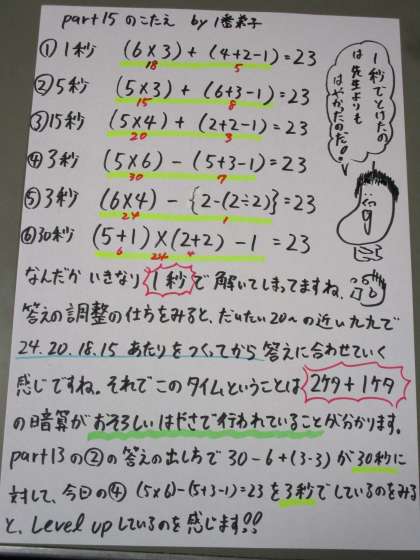 part 15 のこたえ by 1番弟子
① 1秒 (6×3) + (4+2-1) = 23
18 5
② 5秒 (5×3) + (6+3-1) = 23
15 8
③ 15秒 (5×4) + (2+2-1) = 23
20 3
④ 3秒 (5×6) - (5+3-1) = 23
30 7
⑤ 3秒 (6×4) - {2-(2÷2)} = 23
24 1
⑥ 30秒 (5+1)×(2+2) -1 = 23
6 24 4
1秒でとけたの
は先生よりも
はやかったのだ!
なんだか いきなり 1秒 で 解いてしまってますね。
答えの調整の仕方をみると、だいたい20〜の近い九九で
24.20.18.15 あたりをつくってから 答えに合わせていく
感じですね。それでこのタイムということは 2ケタ+1ケタ
の暗算が おそろしいはやさで行われていることが分かります。
part13の②の答えの出し方で 30-6+(3-3) が 30秒に
対して、今日の④ (5×6)-(5+3-1)=23 を3秒でしているのをみる
と、Level upしているのを感じます!!